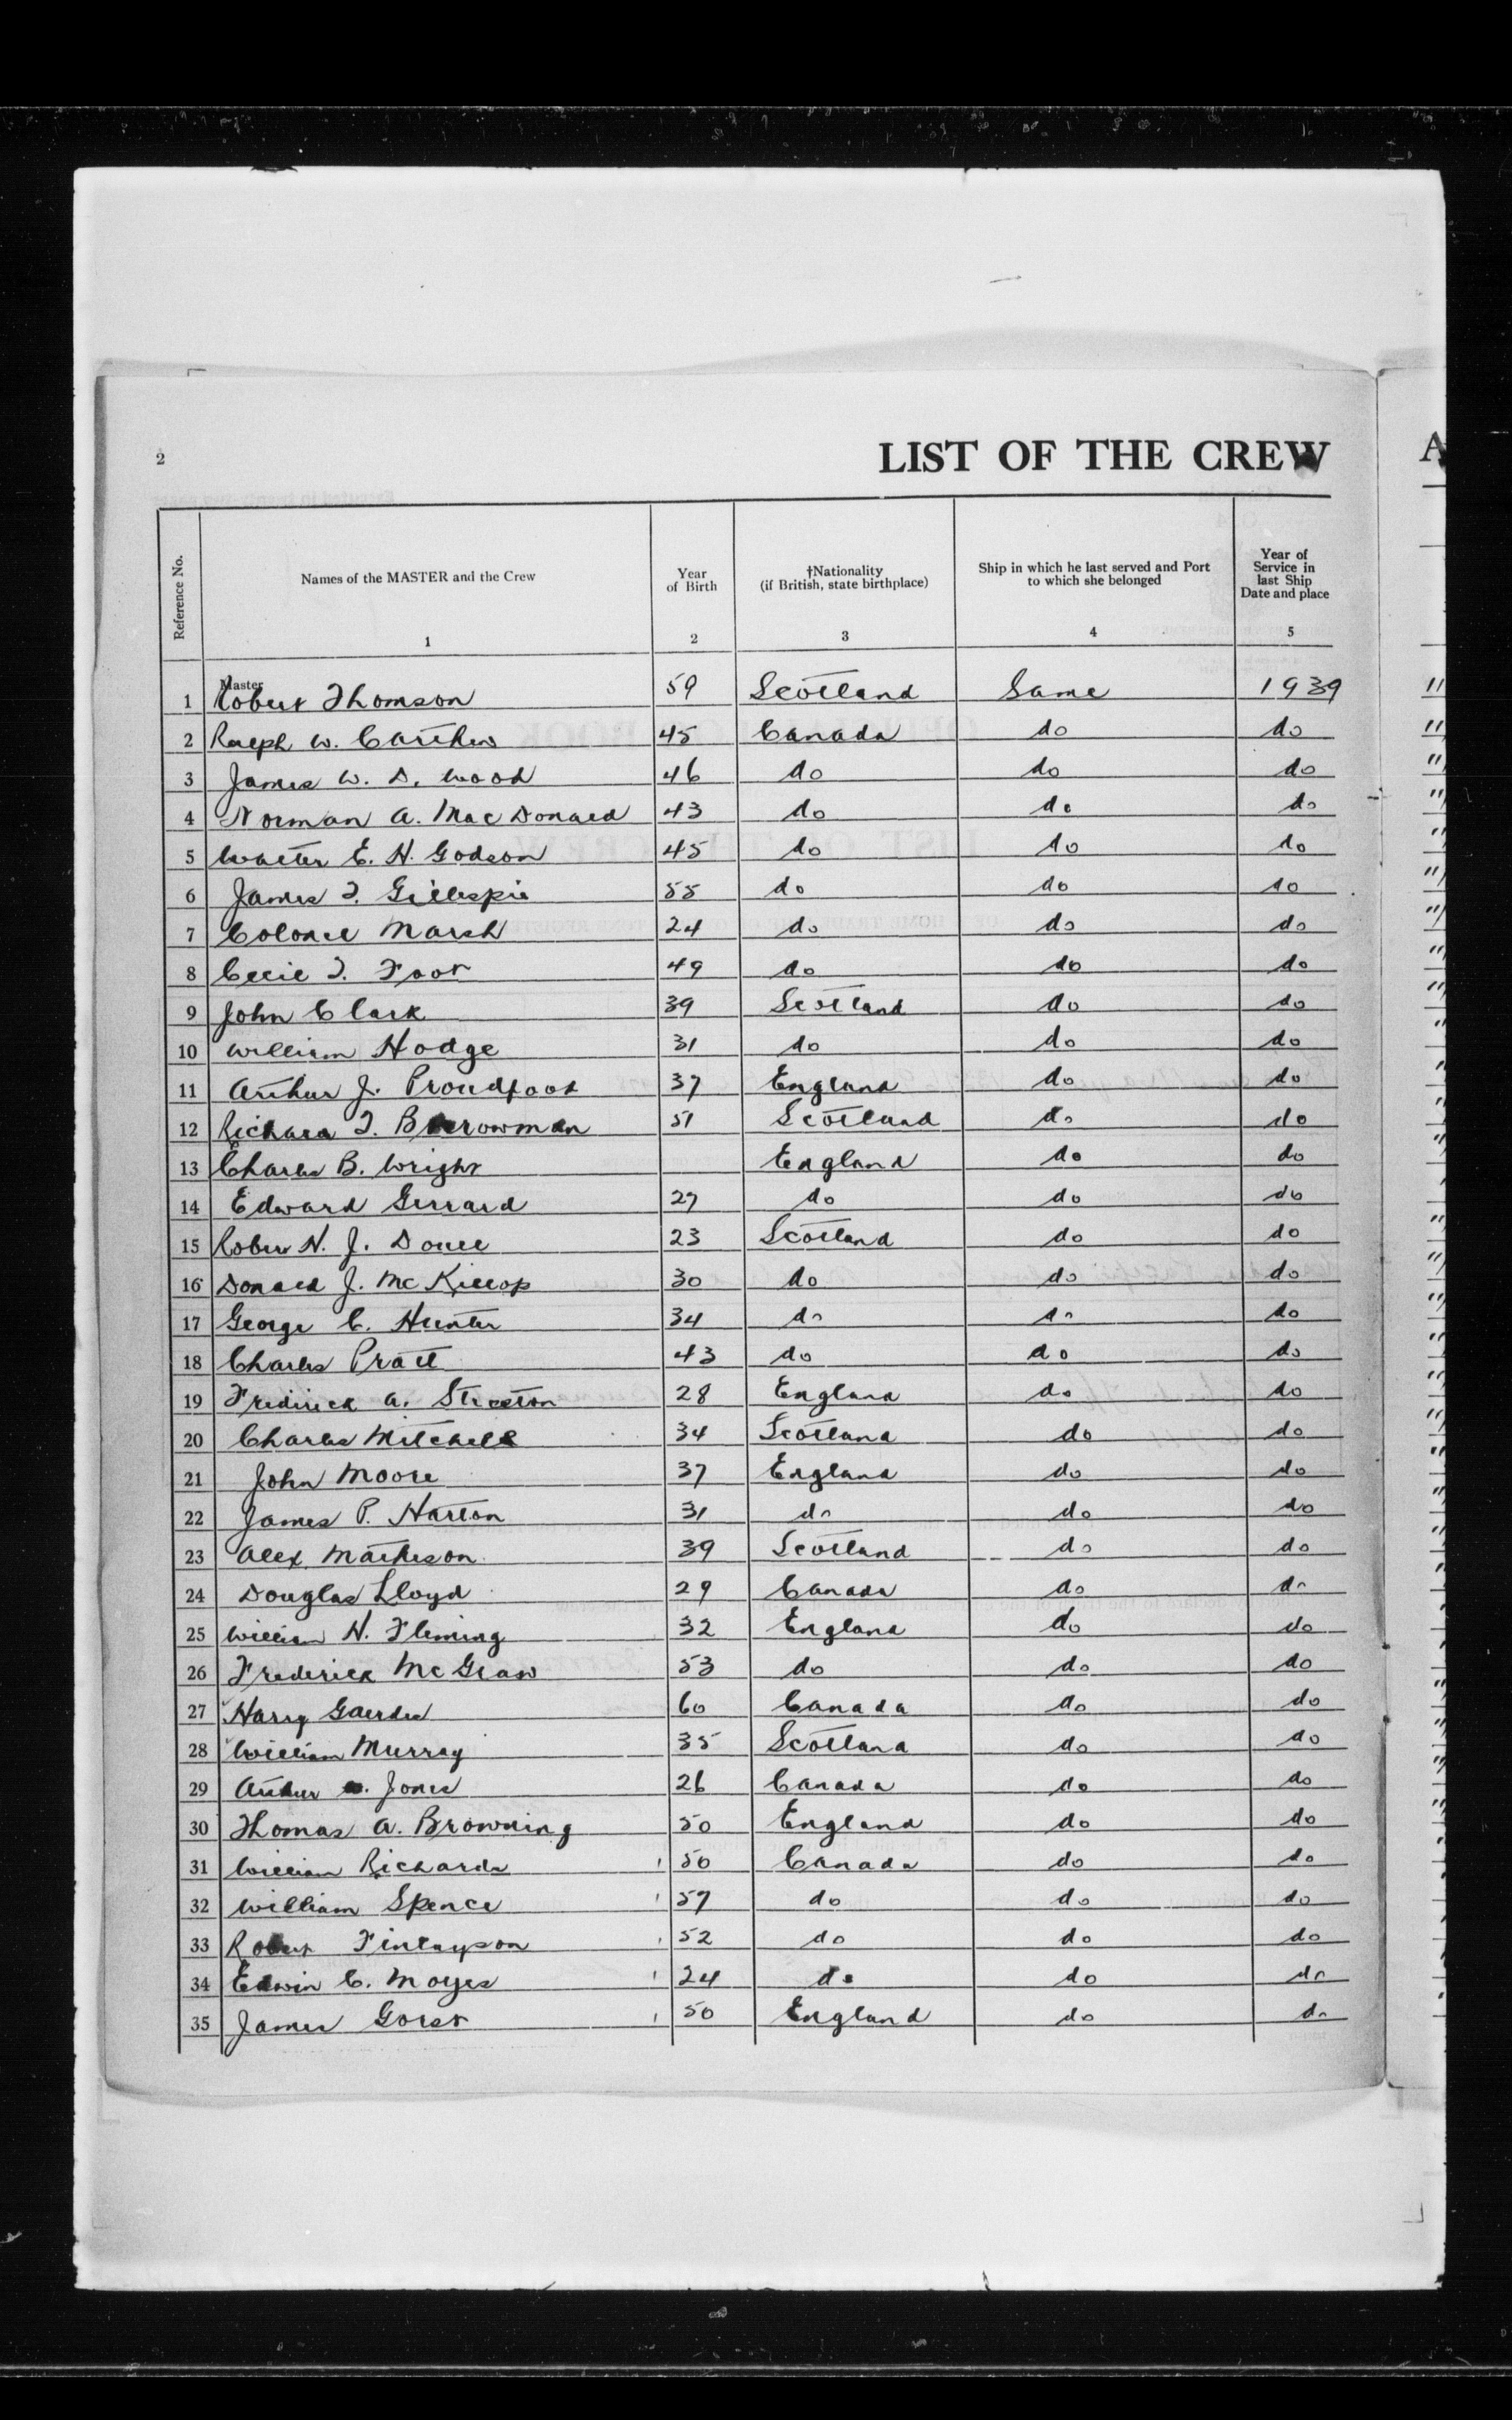 2
LIST OF THE CREW
A
Reference No.
Names of the MASTER and the Crew
Year of Birth
†Nationality (if British, state birthplace)
Ship in which he last served and Port to which she belonged
Year of Service in last Ship Date and place
1 2 3 4 5
Master
1 Robert Thomson 59 Scotland Same 1939 "
2 Ralph W. Carthew 45 Canada do do "
3 James W. D. Wood 46 do do do "
4 Norman A. MacDonald 43 do do do "
5 Walter E. H. Godson 45 do do do "
6 James T. Gillespie 55 do do do "
7 Colonel Marsh 24 do do do "
8 Cecil T. Foot 49 do do do "
9 John Clark 39 Scotland do do "
10 William Hodge 31 do do do "
11 Arthur J. Proudfoot 37 England do do "
12 Richard T. Borrowman 51 Scotland do do "
13 Charles B. Wright England do do "
14 Edward Gerrard 27 do do do
15 Robert H. J. 23 Scotland do do "
16 Donald J. McKillop 30 do do do "
17 George C. Hunter 34 do do do "
18 Charles Pratt 43 do do do "
19 Frederick A. Streeton 28 England do do "
20 Charles Mitchell 34 Scotland do do "
21 John Moore 37 England do do "
22 James P. Harton 31 do do do "
23 Alex Matheson 39 Scotland do do "
24 Douglas Lloyd 29 Canada do do "
25 William H. Fleming 32 England do do "
26 Frederick McGraw 53 do do do "
27 Harry 60 Canada do do "
28 William Murray 35 Scotland do do "
29 Arthur Jones 26 Canada do do "
30 Thomas A. Browning 50 England do do "
31 William Richards 50 Canada do do "
32 William Spence 57 do do do "
33 Robert Finlayson 52 do do do "
34 Edwin C. Moyes 24 do do do "
35 James Gorst 50 England do do "